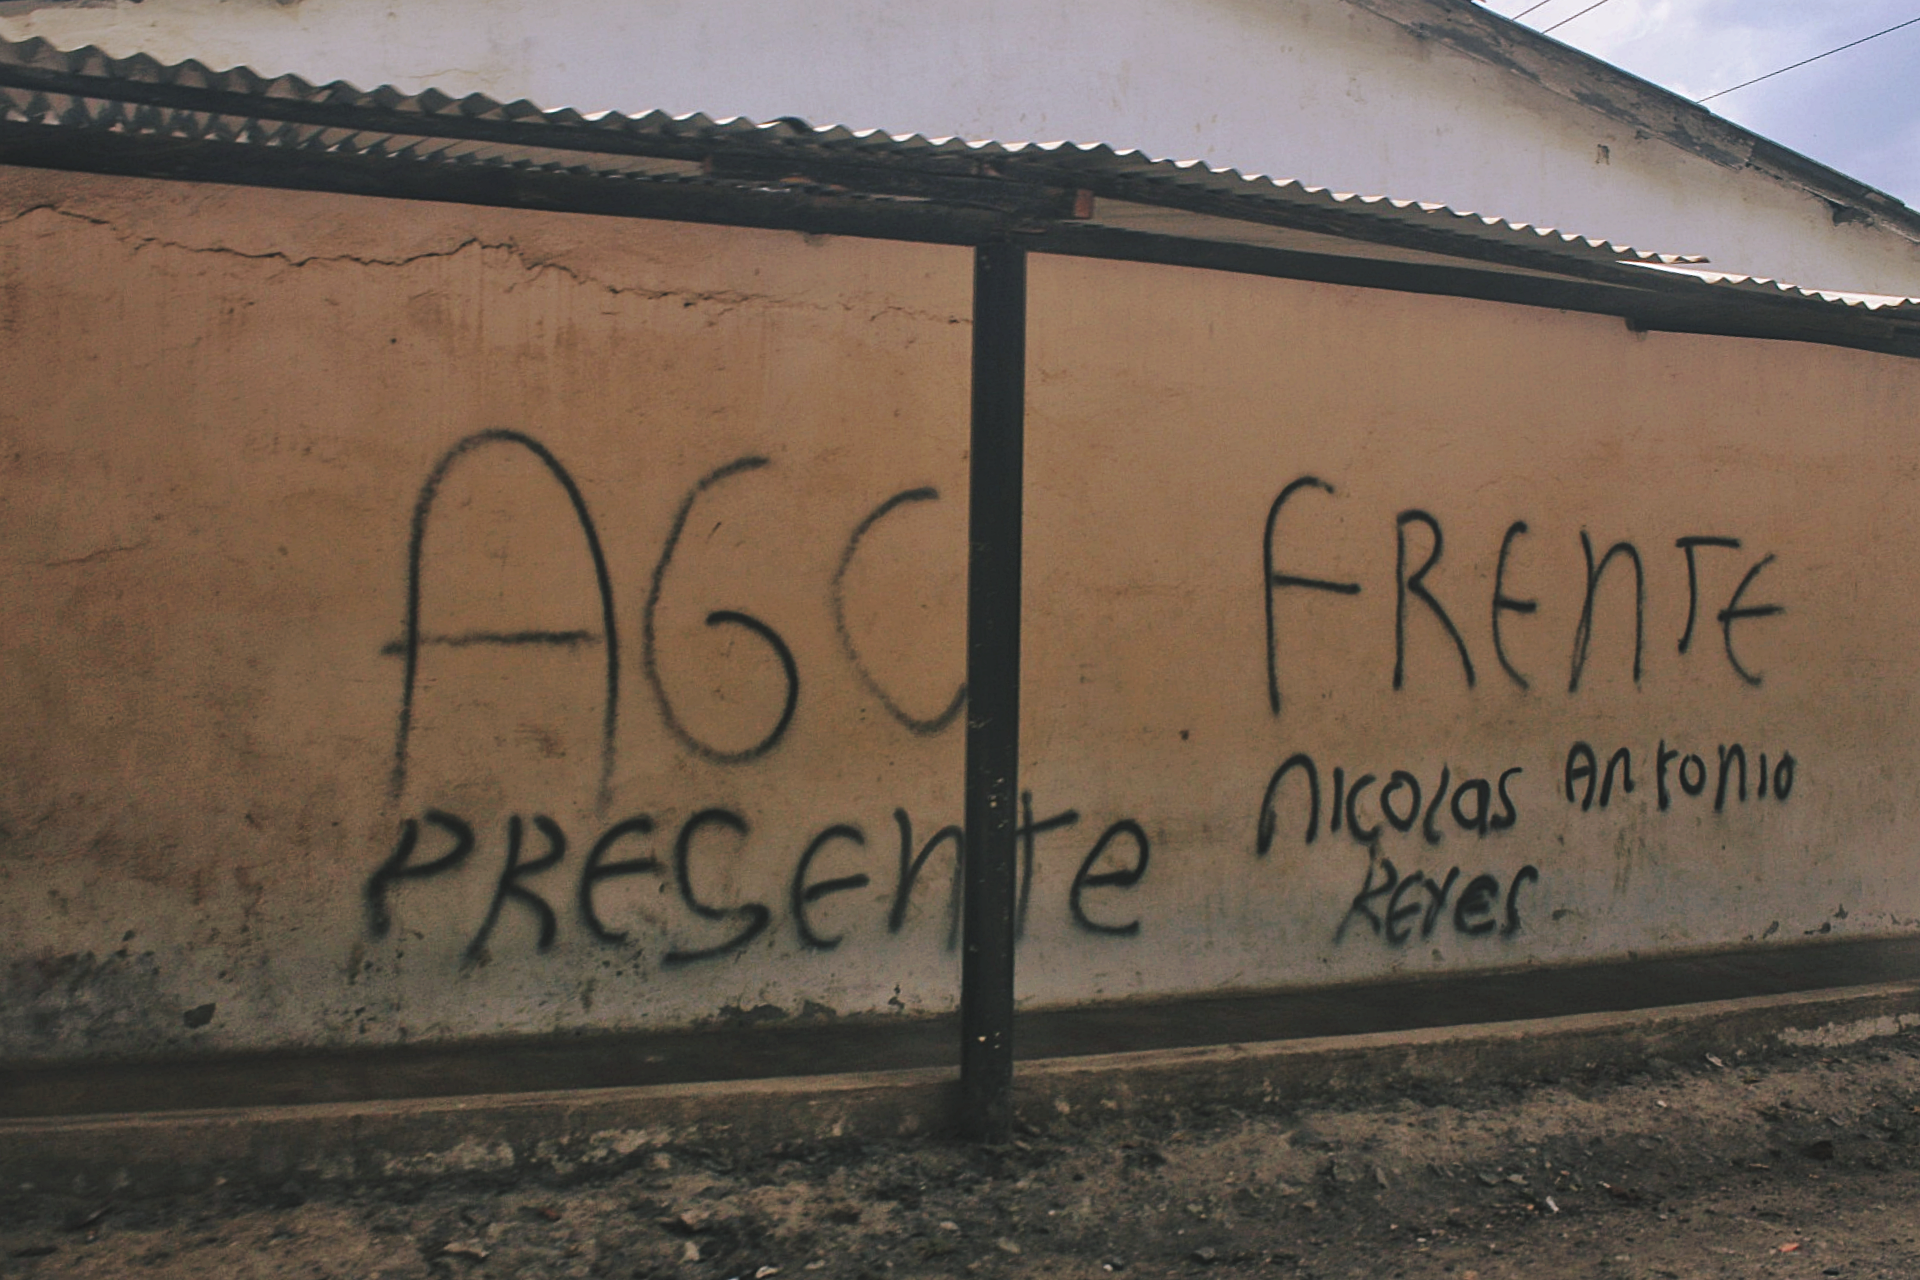 AGC
PRESEnte
FREnTE
nicolas Antonio
REYES